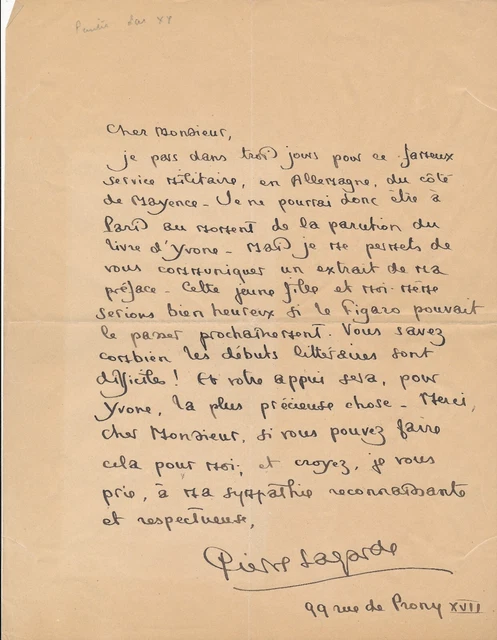 Cher Monsieur,
je pars dans trois jours pour ce fameux
service militaire, en Allemagne, du côté
de Mayence - Je ne pourrai donc être à
Paris au moment de la parution du
livre d'Yvone - Mais je me permets de
vous communiquer un extrait de ma
préface - Cette jeune fille et moi-même
serions bien heureux si le Figaro pouvait
le passer prochainement. Vous savez
combien les débuts littéraires sont
difficiles ! Et votre appui sera, pour
Yvone, la plus précieuse chose - Merci,
cher Monsieur, si vous pouvez faire
cela pour moi, et croyez, je vous
prie, à ma sympathie reconnaissante
et respectueuse,
Pierre Lagarde
99 rue de Prony XVII